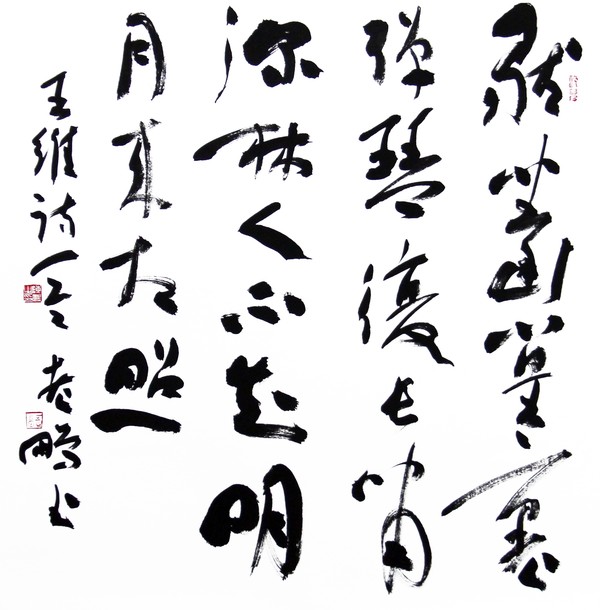 独坐幽篁裏
弹琴復长啸
深林人不知明
月来相照
王维诗一首 老鹏书